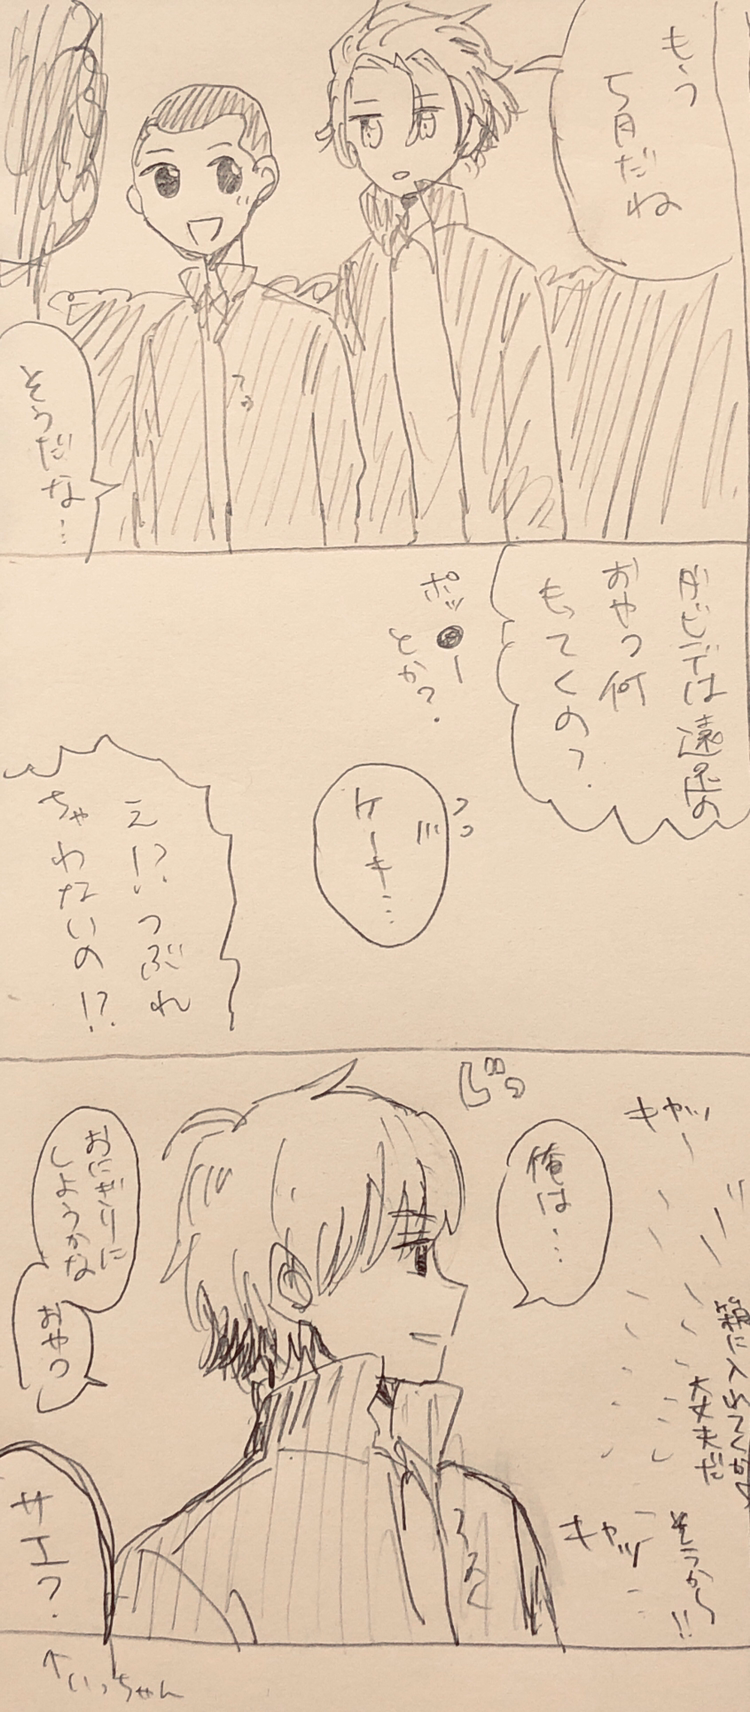 もう
5月だね
そうだな…
ダビデは遠足の
おやつ何
もってくの?
ポッ●ー
とか?
ケーキ…
え!?つぶれ
ちゃわないの!?
キャッ
箱に入れてくから
大丈夫だ
そうか!!
キャッ
俺は…
おにぎりに
しようかな
おやつ
サエ?
↑いっちゃん